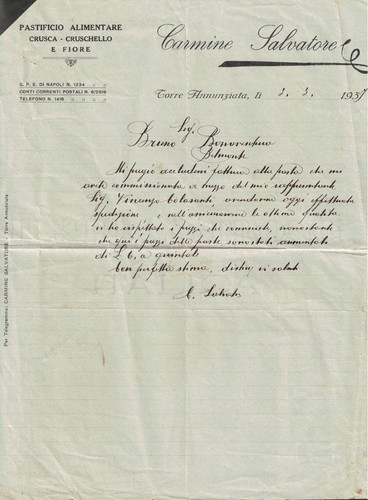 PASTIFICIO ALIMENTARE
CRUSCA - CRUSCHELLO
E FIORE
C. P. E. DI NAPOLI N. 1234
CONTI CORRENTI POSTALI N. 6/2916
TELEFONO N. 1416
Carmine Salvatore
Torre Annunziata, li 3. 3. 1937
Sig.
Bruno Bonaventura
Belmonte
Mi pregio accludervi fattura della pasta che mi
avete commissionata a mezzo del mio rappresentante
Sig. Vincenzo Colosanti, avendovene oggi effettuata
spedizione, e nell'assicurarvene la ottima qualità
vi ho rispettato i prezzi che convenuti, nonostante
che qui i prezzi delle paste sono stati aumentati
di L 6, a quintale
Con perfetta stima, distin. vi saluto
C. Salvatore
Per Telegrammi: CARMINE SALVATORE - Torre Annunziata